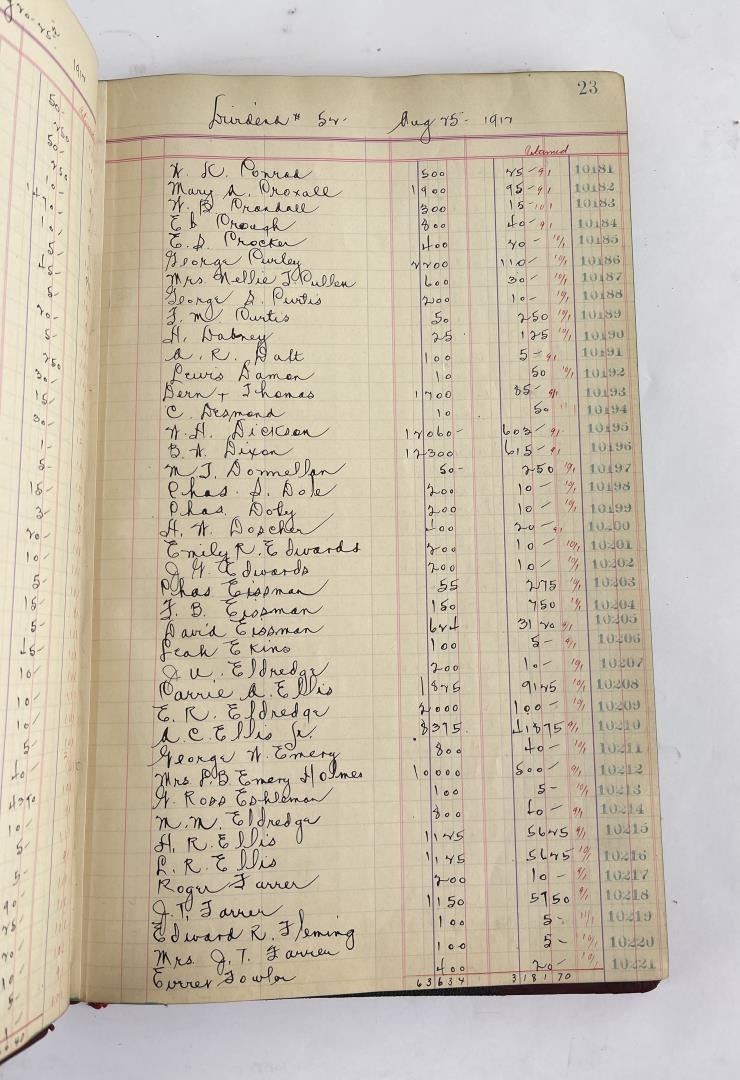 23
Dividend # 52- Aug 25- 1917
Returned
W. K. Conrad 500 25- 9/1 10181
Mary A. Croxall 1900 95- 9/1 10182
W. B. Crandall 300 15- 10/1 10183
E L Crough 800 40- 9/1 10184
E. S. Crocker 400 20- 10/1 10185
George Curley 2200 110- 10/1 10186
Mrs. Nellie J. Cullen 600 30- 9/1 10187
George S. Curtis 200 10- 10/1 10188
J. M. Curtis 50 250 10/1 10189
H. Dabney 25 125 10/1 10190
A. R. Dalt 100 5- 9/1 10191
Lewis Damon 10 50 10/1 10192
Dern + Thomas 1700 85- 9/1 10193
C. Desmond 10 50 10194
W. H. Dickson 12060- 603- 9/1 10195
B. A. Dixon 12300 615- 9/1 10196
M J. Donnellan 50- 250 10/1 10197
Chas. S. Dole 200 10- 10/1 10198
Chas. Doty 200 10- 10/1 10199
H. W. Doscher 400 20- 9/1 10200
Emily R. Edwards 200 10- 10/1 10201
J. W. Edwards 200 10- 10/1 10202
Chas Eissman 55 275 10/1 10203
F. B. Eissman 150 750 10/1 10204
David Eissman 624 31 20 9/1 10205
Leah Ekins 100 5- 9/1 10206
J. U. Eldredge 200 10- 10/1 10207
Carrie A. Ellis 1825 9125 10/1 10208
E. R. Eldredge 2000 100- 10/1 10209
A. C. Ellis Jr. 8375. 41875 9/1 10210
George W. Emery 800 40- 10/1 10211
Mrs. L. B Emery Holmes 10000 500- 9/1 10212
G. Ross Eshleman 100 5- 10/1 10213
M. M. Eldredge 800 40- 9/1 10214
H. R. Ellis 1125 5625 9/1 10215
L. R. Ellis 1125 5625 10/1 10216
Roger Farrer 200 10- 9/1 10217
J. T. Farrer 1150 5750 9/1 10218
Edward R. Fleming 100 5- 11/1 10219
Mrs. J. T. Farrer 100 5- 10/1 10220
Fowler 400 20- 10/1 10221
63634 318170